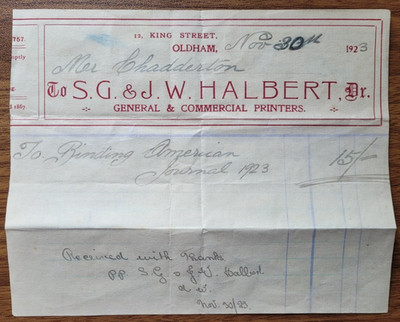 757.
12, KING STREET,
OLDHAM, Nov 30th 1923
Mr Chadderton
To S.G. & J.W. HALBERT, Dr.
GENERAL & COMMERCIAL PRINTERS.
To Printing American 15/-
Journal 1923
Received with Thanks
pp. S G & J W. Halbert
Nov. 30/23